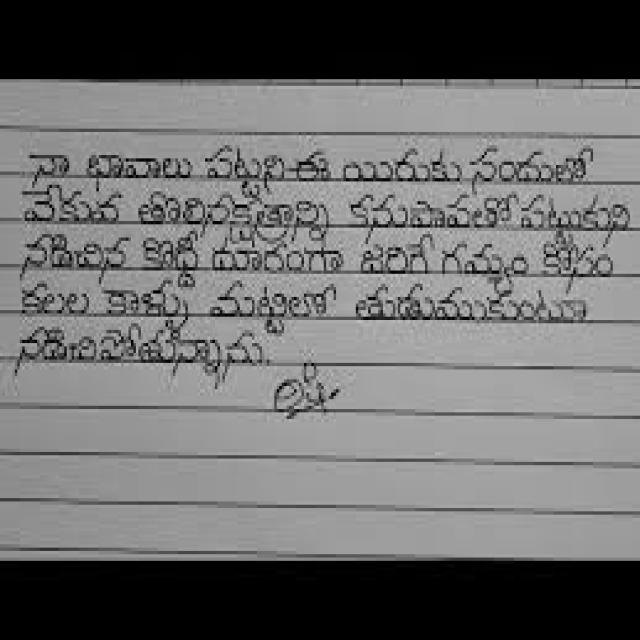 నా భావాలు పట్టని ఈ యిరుకు సందులో
వేకువ తొలినక్షత్రాన్ని కనుపాపలో పట్టుకుని
నడిచిన కొద్దీ దూరంగా జరిగే గమ్యం కోసం
కలల కాళ్ళు మట్టిలో తుడుముకుంటూ
నడిచిపోతున్నాను.